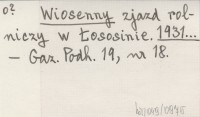 o?
Wiosenny zjazd rol-
niczy w Łososinie. 1931...
— Gaz. Podh. 19, nr 18.